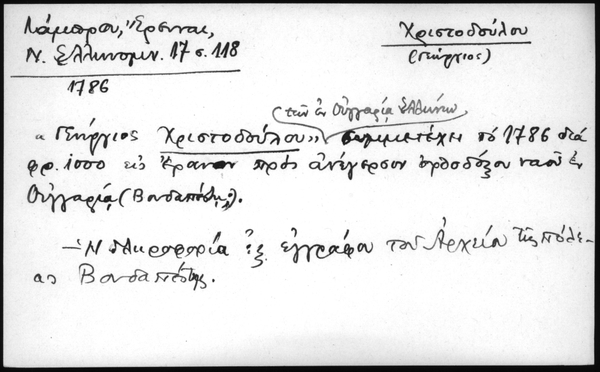 Λάμπρου, Ἔρευναι,
Ν. Ἑλληνομν. 17 σ. 118
1786
Χριστοδούλου
(Γεώργιος)
(τῶν ἐν Οὐγγαρίᾳ Ἑλλήνων
«Γεώργιος Χριστοδούλου» συμμετέχει τό 1786 διά
φρ. 1000 εἰς ἔρανον πρός ἀνέγερσιν ὀρθοδόξου ναοῦ ἐν
Οὐγγαρίᾳ (Βουδαπέστη;).
— Ἡ πληροφορία ἐξ ἐγγράφου τοῦ Ἀρχείου τῆς πόλε-
ως Βουδαπέστης.